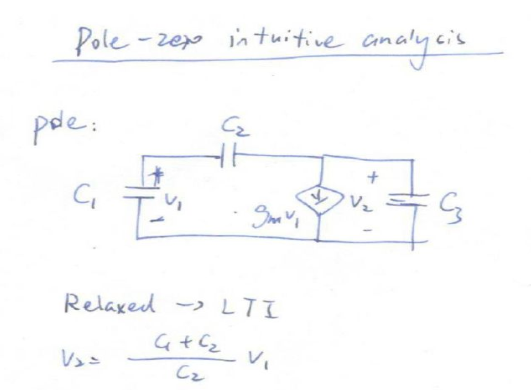 Pole-zero intuitive analysis
pole:
C2
C1 + V1 - gmV1 + V2 - C3
Relaxed -> LTI
V2 = C1 + C2 / C2 V1